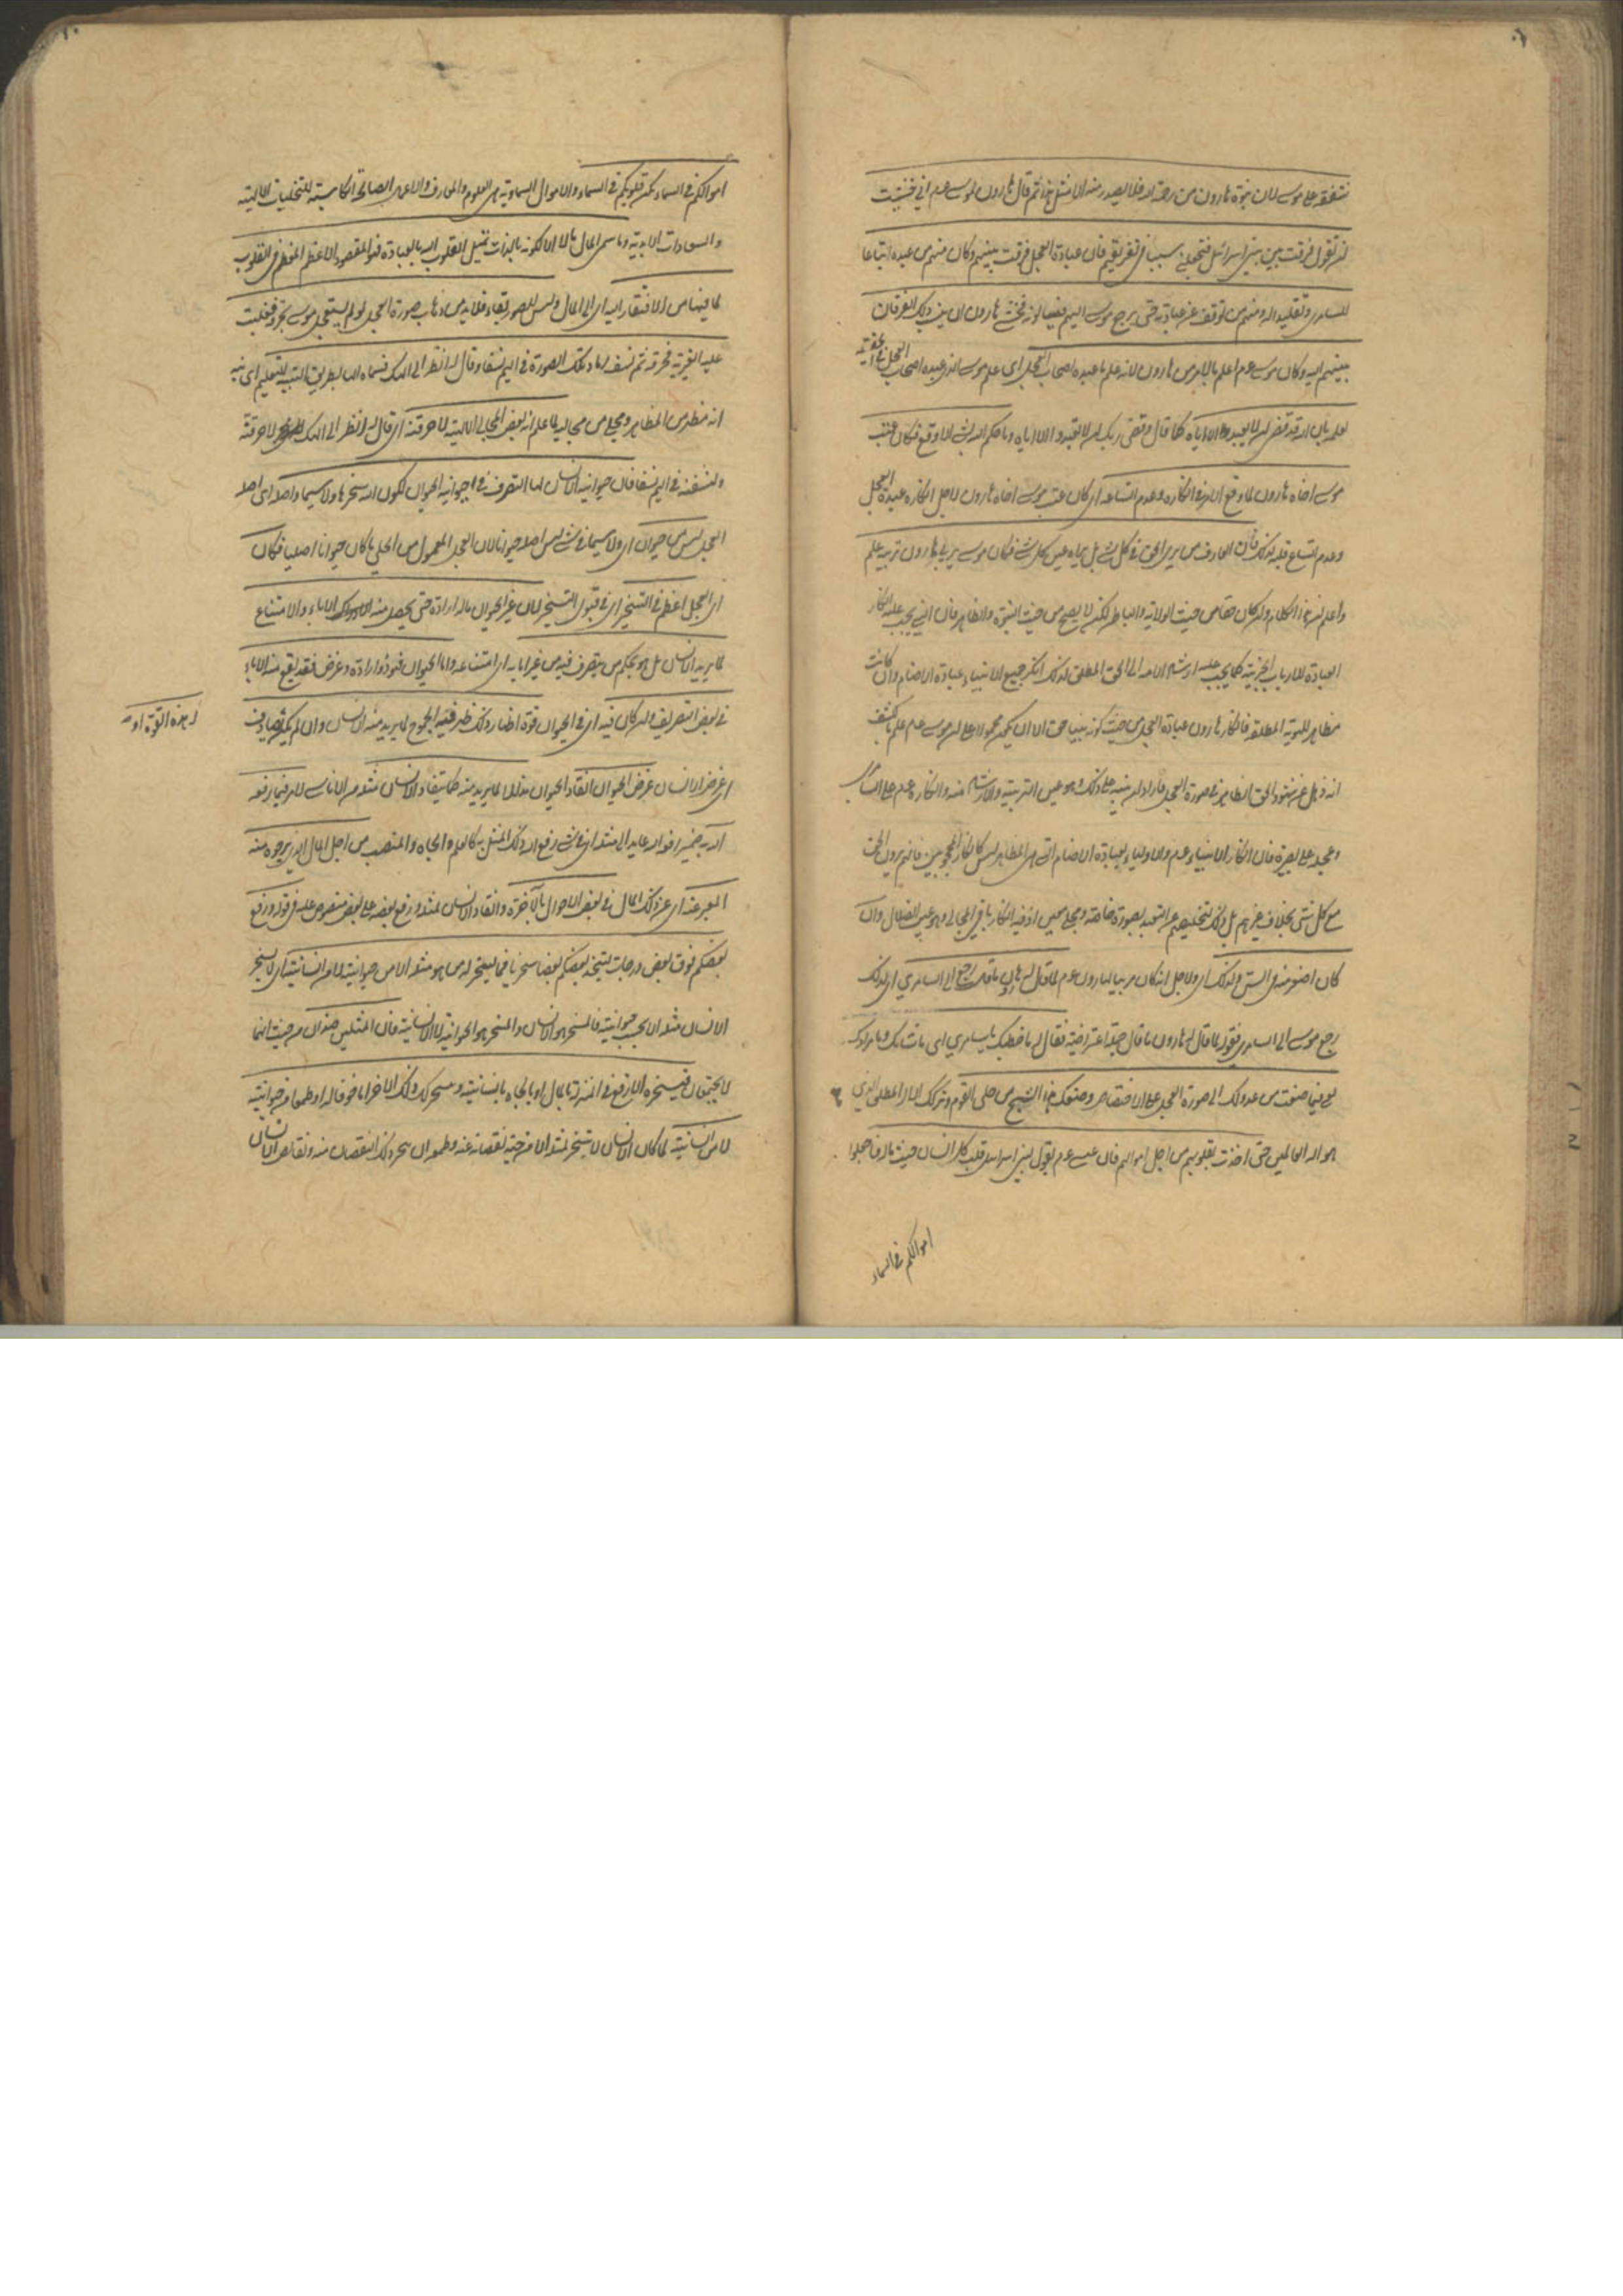 شفقة على موسى لان نبوة هارون من رحمة الله فلا يصدر منه الا مثل هذا ثم قال هارون لموسى عم اني خشيت
ان تقول فرقت بين بني اسرائيل فتجعلني سببا في تفريقهم فان عبادة العجل فرقت بينهم وكان منهم من عبده اتباعا
للسامري وتقليدا له ومنهم من توقف عن عبادته حتى يرجع موسى اليهم فيسالونه فخشي هارون ان ينسب ذلك الفرقان
بينهم اليه وكان موسى عم اعلم بالامر من هارون لانه علم ما عبده اصحاب العجل اى علم موسى الذي عبده اصحاب العجل في الحقيقة
لعلمه بان الله قد قضى ان لا يعبد الا اياه كما قال وقضى ربك ان لا تعبدوا الا اياه وما حكم الله بشئ الا وقع فكان عتب
موسى اخاه هارون لما وقع الامر في انكاره وعدم اتساعه اى كان عتب موسى اخاه هارون لاجل انكاره عبدة العجل
وعدم اتساع قلبه لذلك فان العارف من يرى الحق في كل شئ بل يراه عين كل شئ فكان موسى يربي هارون تربية علم
واعلم ان هذا الكلام وان كان حقا من حيث الولاية والباطن لكن لا يصح من حيث النبوة والظاهر فان النبي يجب عليه انكار
العبادة للارباب الجزئية كما يجب عليه ارشاد الامة الى الحق المطلق لذلك انكر جميع الانبياء عبادة الاصنام وان كانت
مظاهر للهوية المطلقة فانكار هارون عبادة العجل من حيث كونه نبيا حق الا ان يكون محمولا على ان موسى عم علم بالكشف
انه ذهل عن شهود الحق الظاهر في صورة العجل فاراد ان ينبه على ذلك وهو عين التربية والارشاد منه وانكاره عم على السامري
وعجله على بصيرة فان انكار الانبياء عم والاولياء لعبادة الاصنام التي هي المظاهر ليس كانكار المحجوبين فانهم يرون الحق
مع كل شئ بخلاف غيرهم بل ذلك لتخليصهم عن التقيد بصورة خاصة ومجلى معين اذ فيه انكار باقي المجالي وهو عين الضلال وان
كان اصغر منه في السن ولذلك اى ولاجل انه كان مربيا لهارون عم لما قال له هارون ما قال رجع الى السامري اى لذلك
رجع موسى الى السامري فقوله لما قال له هارون ما قال جملة اعتراضية فقال له ما خطبك يا سامري اى ما شانك وما مرادك
يعني فيما صنعت من عدولك الى صورة العجل على الاختصاص وصنعك هذا الشبح من حلى القوم وتركك الاله المطلق الذي
هو اله العالمين حتى اخذت بقلوبهم من اجل اموالهم فان عيسى عم يقول لبني اسرائيل قلب كل انسان حيث ماله فاجعلوا
اموالكم في السماء
اموالكم في السماء تكن قلوبكم في السماء والاموال السماوية هي العلوم والمعارف والاعمال الصالحة الكاسبة للتجليات الالهية
والسعادات الابدية وما سمى المال مالا الا لكونه بالذات تميل القلوب اليه بالعبادة فهو المقصود الاعظم المعظم في القلوب
لما فيها من الافتقار اليه اى الى المال وليس للصور بقاء فلا بد من ذهاب صورة العجل لو لم يستعجل موسى بحرقه فغلبت
عليه الغيرة فحرقه ثم نسف رماد تلك الصورة في اليم نسفا وقال له انظر الى الهك فسماه الها بطريق التنبيه للتعليم اى نبه
انه مظهر من المظاهر ومجلى من مجاليه لما علم انه بعض المجالي الالهية لاحرقنه اى قال له انظر الى الهك لاحرقنه
ولننسفنه في اليم نسفا فان حيوانية الانسان لها التصرف في حيوانية الحيوان لكون الله سخرها ولا سيما واصله اى اصل
العجل ليس من حيوان اى ولا سيما في شئ ليس اصله حيوانا لان العجل المعمول من الحلي ما كان حيوانا اصليا فكان
اى العجل اعظم في التسخير اى في قبول التسخير لان غير الحيوان ماله ارادة حتى يحصل منه الاباء والامتناع
لما يريد الانسان بل هو بحكم من يتصرف فيه من غير اباية اى امتناعه واما الحيوان فهو ذو ارادة وغرض فقد يقع منه الاباء
في بعض التصريف وان كان فيه اى في الحيوان قوة اظهار ذلك ظهر فيه الجموح لما يريد منه الانسان وان لم يكن يصادف
له هذه القوة او
اى غرض الانسان غرض الحيوان انقاد الحيوان مذللا لما يريد منه كما ينقاد الانسان مثله من الاناسي لامر فيما رفعه
الله به ضمير رفعه الله عايد الى مثله اى في شئ رفع الله ذلك المثل به كالعلم والجاه والمنصب من اجل المال الذي يرجوه منه
المعبر عنه اى عن ذلك المال في بعض الاحوال بالاجرة وانقاد الانسان لمثله ورفع بعضه على بعض منصوص عليه في قوله ورفع
بعضكم فوق بعض درجات ليتخذ بعضكم بعضا سخريا فما يسخر له من هو مثله الا من حيوانيته لا من انسانيته اى لا يسخر
الانسان مثله الا بحسب حيوانيته فالمسخر هو الانسان والمسخر هو الحيوانية لا الانسانية فان المثلين ضدان من حيث انهما
لا يجتمعان فيسخره الارفع في المنزلة بالمال او بالجاه بانسانيته ويتسخر له ذلك الاخر اما خوفا له او طمعا من حيوانيته
لا من انسانيته لما كان الانسان لا يسخر لمثله الا من حيث نقصانه عنه وطمعه ان ينجبر ذلك النقصان منه ونقايص الانسان